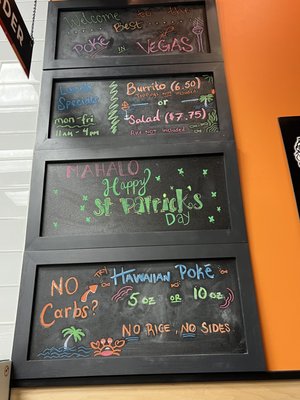 DER
Welcome to the
Best
Poké in VEGAS
Lunch
Specials
mon-fri
11am - 4pm
Burrito (6.50)
Toppings Not Included
or
Salad ($7.75)
Rice Not Included
MAHALO
Happy
St Patrick's
Day
NO
Carbs?
HAWAIIAN POKÉ
5 oz OR 10 oz
NO RICE, NO SIDES